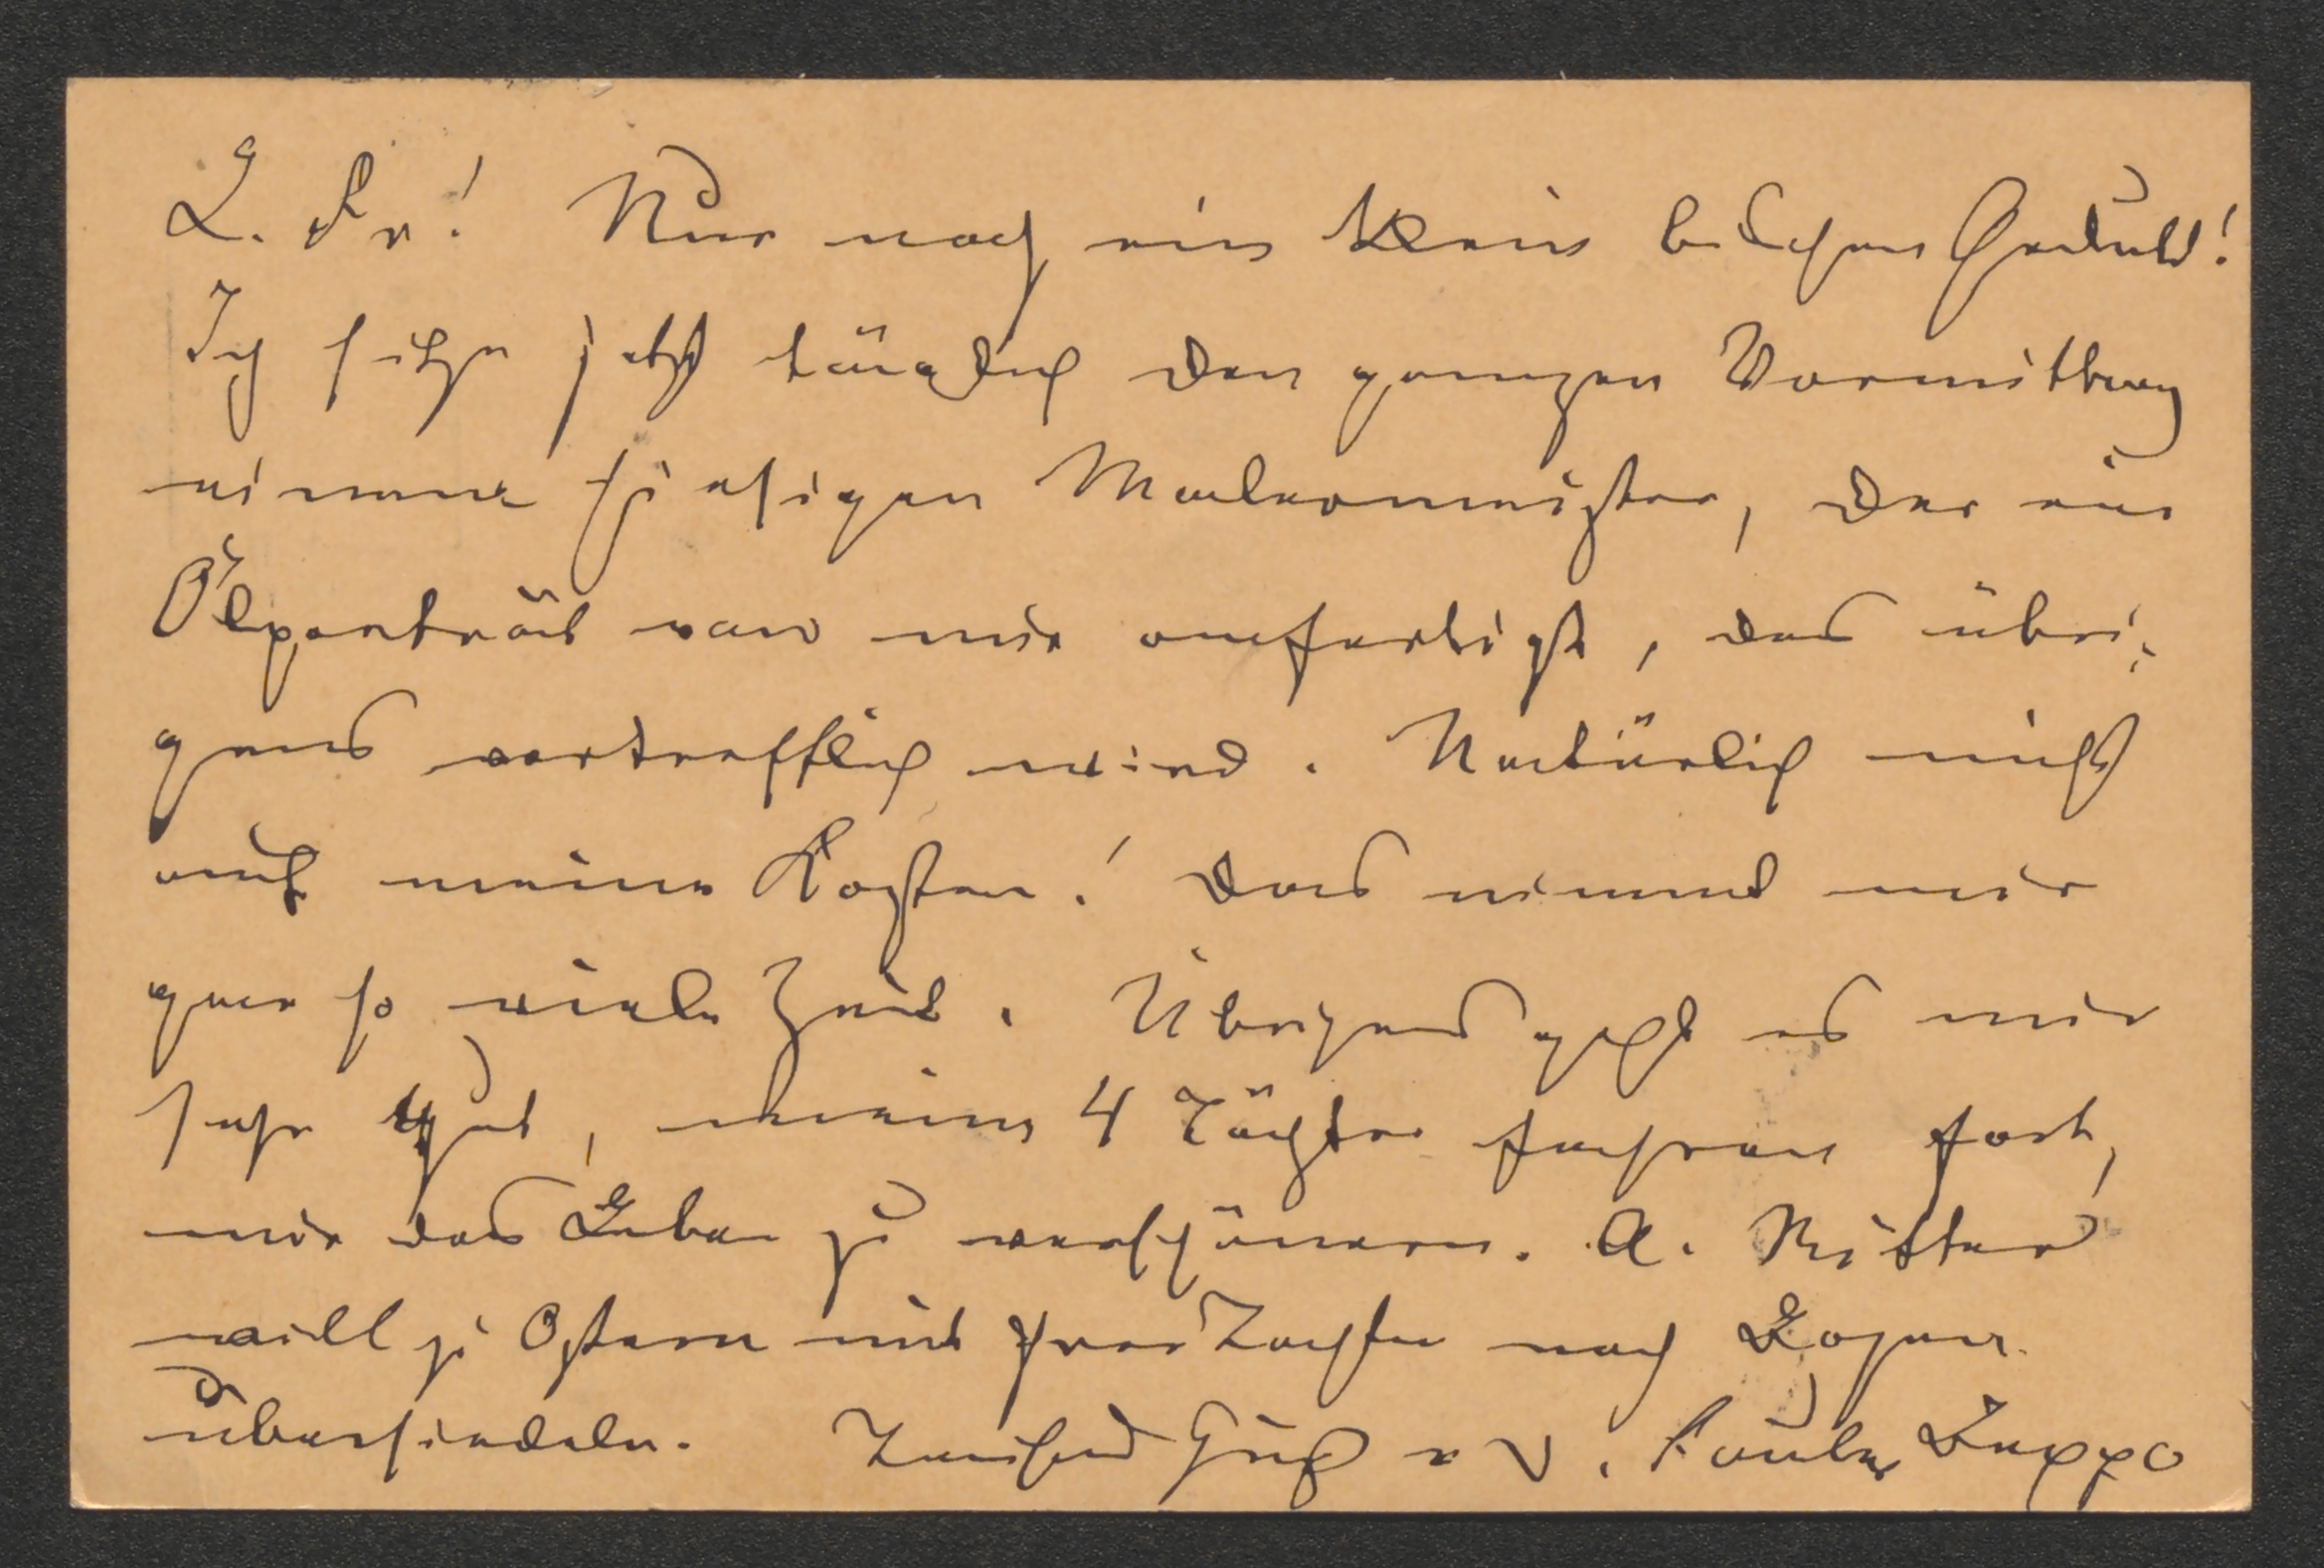 L. Fr! Nur noch ein klein bischen Geduld!
Ich sitze jetzt täglich den ganzen Vormittag
einem hiesigen Malermeister, der ein
Ölporträt von mir anfertigt, das übri-
gens vortrefflich wird. Natürlich nicht
auf meine Kosten! Das nimmt mir
gar so viele Zeit. Übrigens geht es mir
sehr gut, meine 4 Töchter fahren fort,
mir das Leben zu verschönern. A. Ritter
will zu Ostern mit zwei Töchter nach
übersiedeln. Tausend Grüß